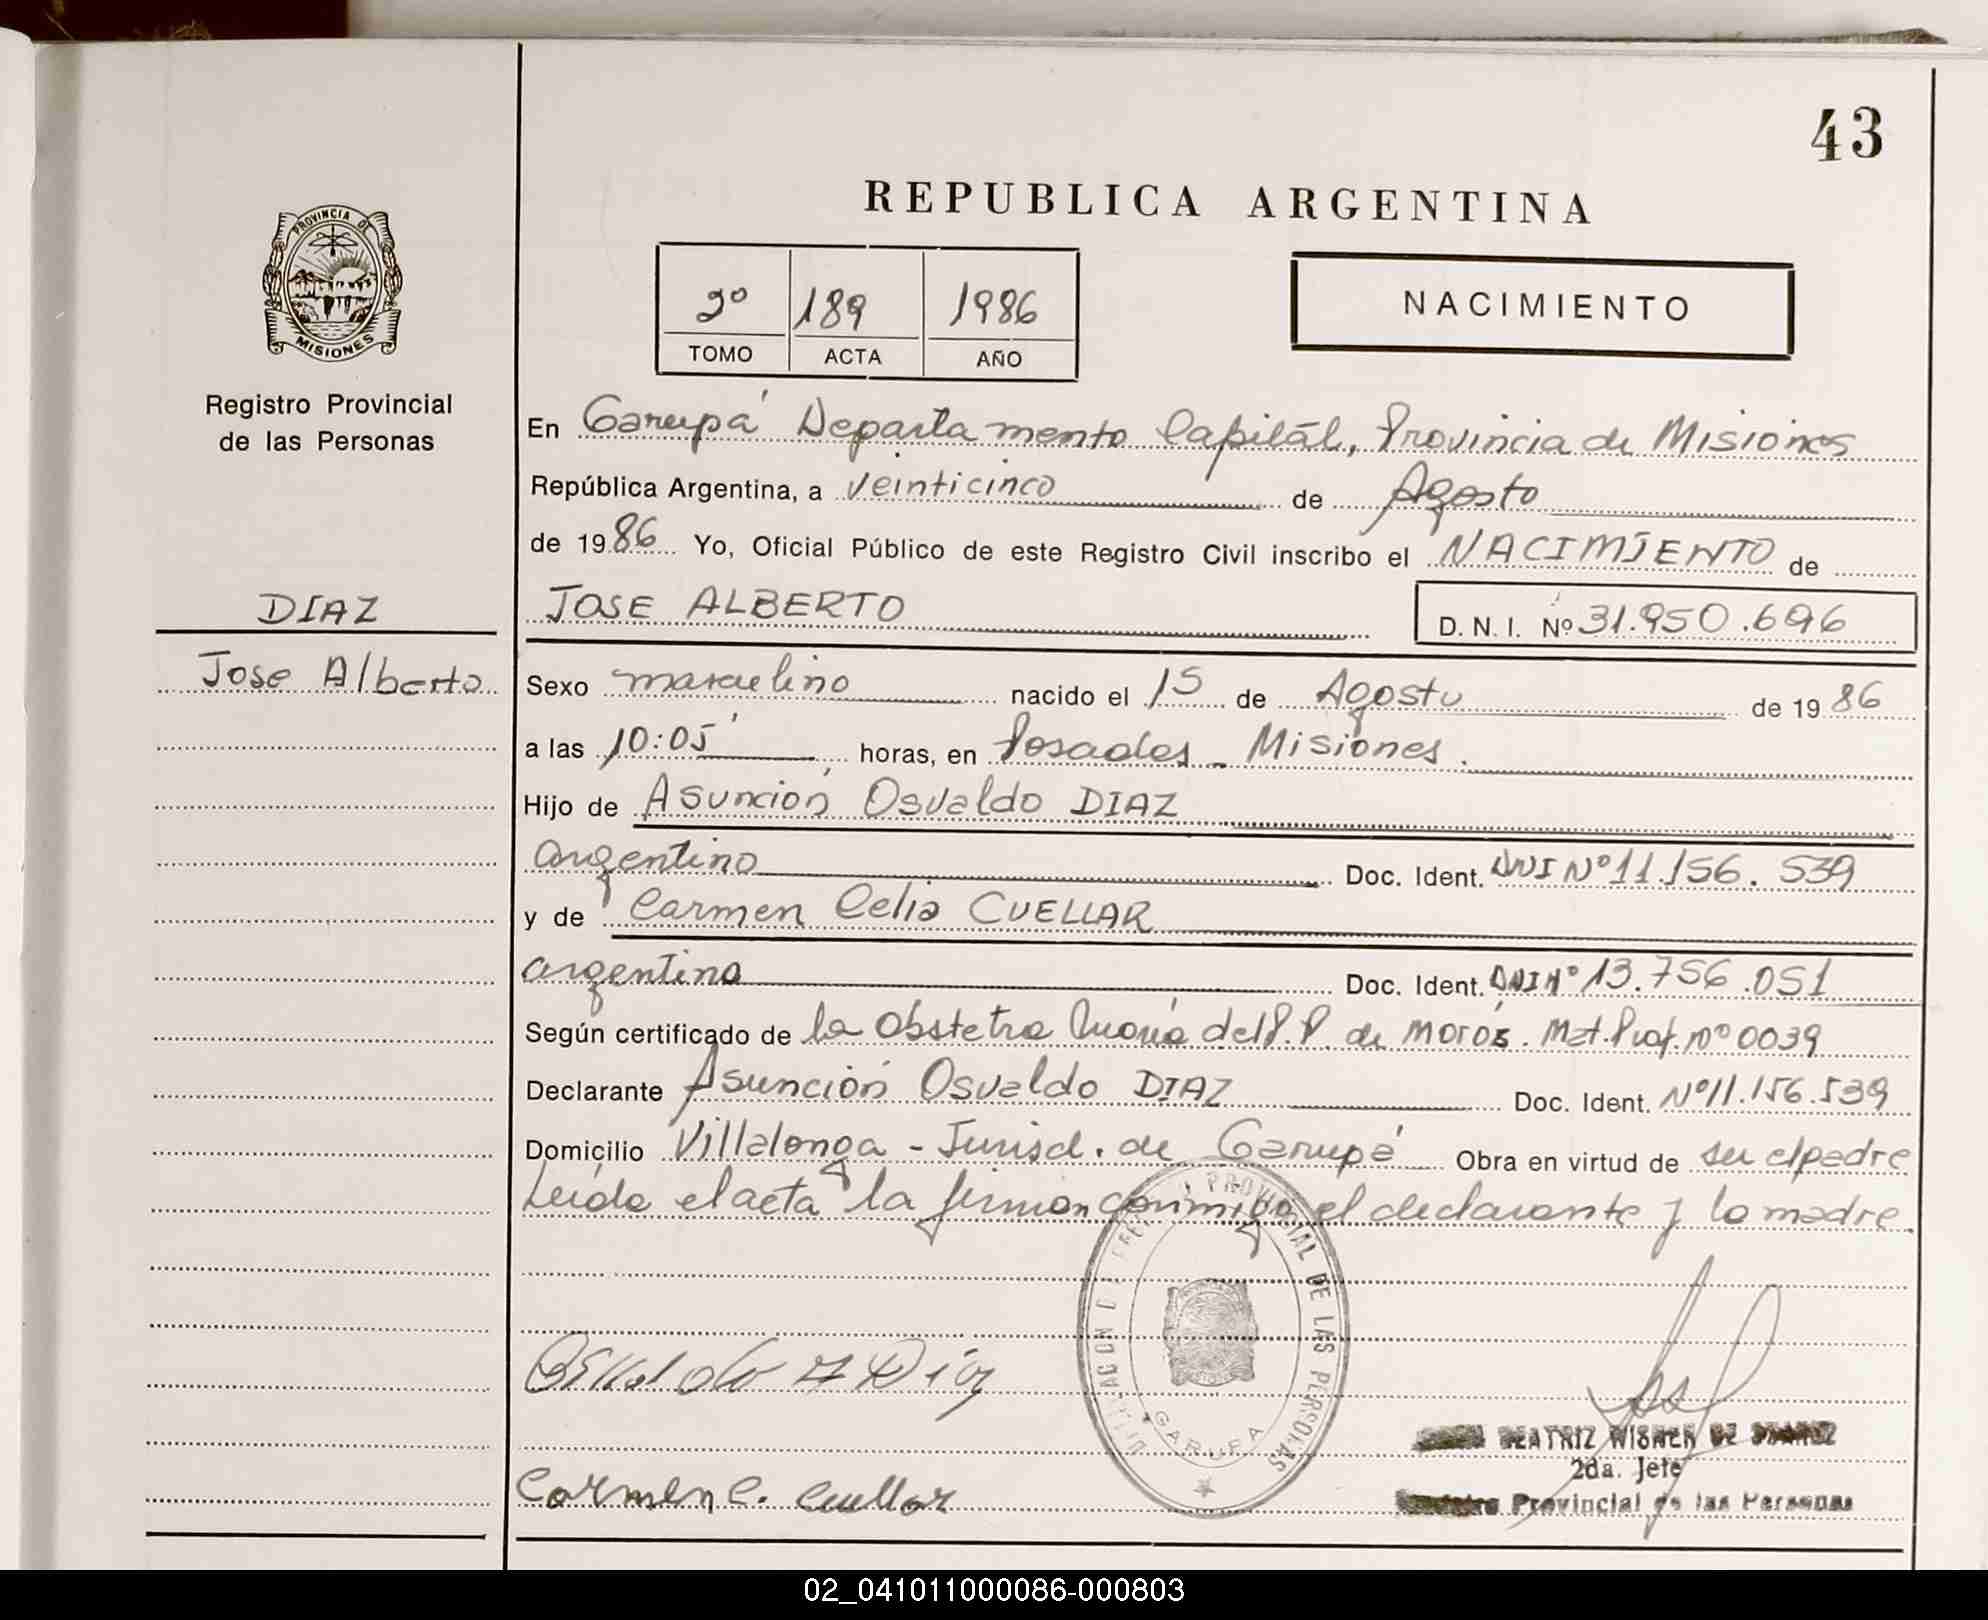 43
REPUBLICA ARGENTINA
PROVINCIA DE
MISIONES
Registro Provincial
de las Personas
2º 189 1986
TOMO ACTA AÑO
NACIMIENTO
En Garupá Departamento Capital, Provincia de Misiones
República Argentina, a veinticinco de Agosto
de 1986 Yo, Oficial Público de este Registro Civil inscribo el NACIMIENTO de
DIAZ
JOSE ALBERTO D. N. I. Nº 31.950.696
Jose Alberto
Sexo masculino nacido el 15 de Agosto de 1986
a las 10:05' horas, en Posadas - Misiones.
Hijo de Asunción Osvaldo DIAZ
argentino Doc. Ident. DNI Nº 11.156.539
y de Carmen Celia CUELLAR
argentina Doc. Ident. DNI Nº 13.756.051
Según certificado de la Obstetra María del P. P. de Morós. Mat. Prof. nº 0039
Declarante Asunción Osvaldo DIAZ Doc. Ident. Nº 11.156.539
Domicilio Villalonga - Jurisd. de Garupá Obra en virtud de ser el padre
Leída el acta la firman conmigo el declarante y la madre.
PROVINCIAL DE LAS PERSONAS
GARUPA
Osvaldo A Diaz
BEATRIZ WISNER DE
2da. Jefe
Provincial de las Personas
Carmen C. Cuellar
02_041011000086-000803